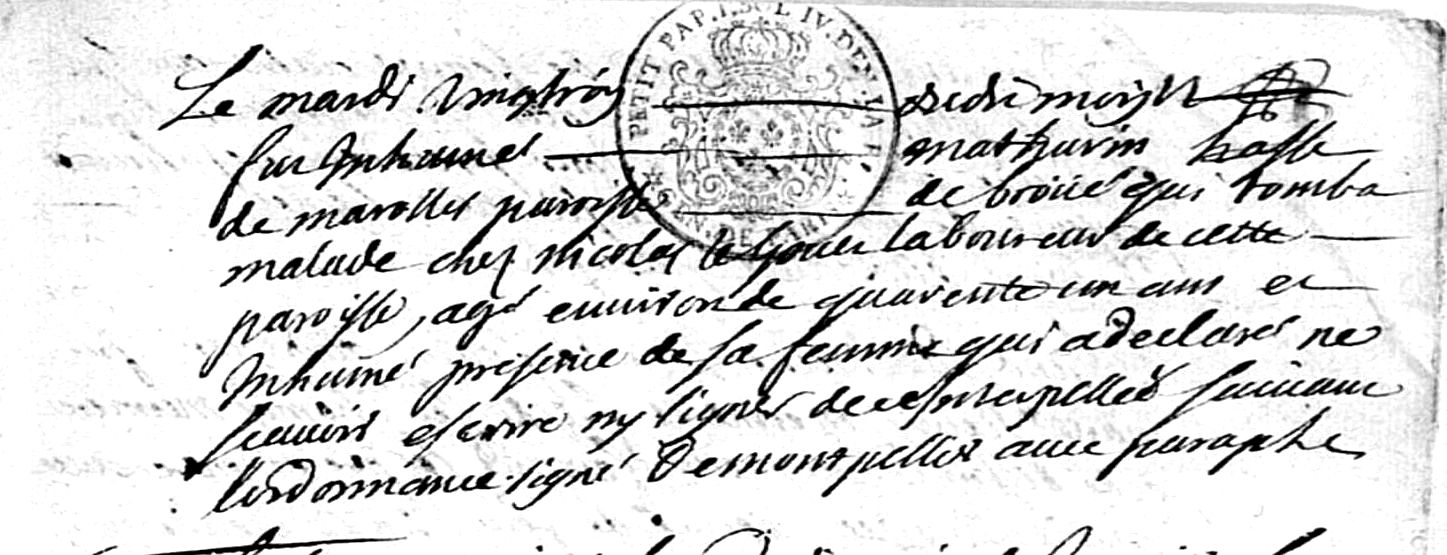 PETIT PAP. 1. SOL IV. DEN. LA F.
Le mardi vingtroy dudi moist
fut Inhumé mathurin
de marolles paroisse de broüé qui tomba
malade chez nicolas laboureur de cette
paroisse, agé environ de quarente un ans et
Inhumé presence de sa femme qui a declaré ne
scauoir escrire ny signer de ce Interpellée suiuant
lordonnance. signé Demontpellier auec paraphe